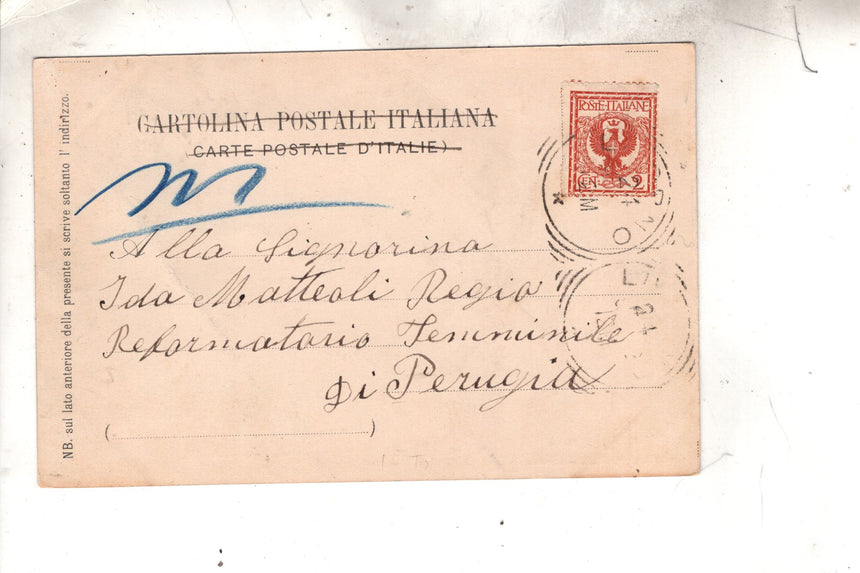 CARTOLINA POSTALE ITALIANA
(CARTE POSTALE D'ITALIE)
POSTE·ITALIANE
CEN 2
Alla Signorina
Ida Matteoli Regio
Reformatorio Femminile
Di Perugia
NB. sul lato anteriore della presente si scrive soltanto l' indirizzo.